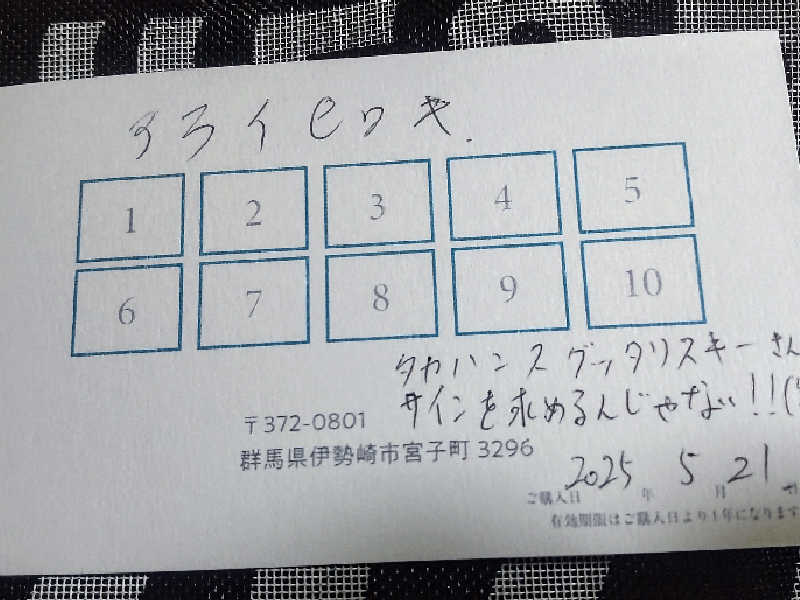 アライヒロキ.
1 2 3 4 5
6 7 8 9 10
タカハンスグッタリスキーさん
サインを求めるんじゃない!!(
〒372-0801
群馬県伊勢崎市宮子町 3296
2025 5 21
ご購入日 年 月
有効期限はご購入日より1年になります